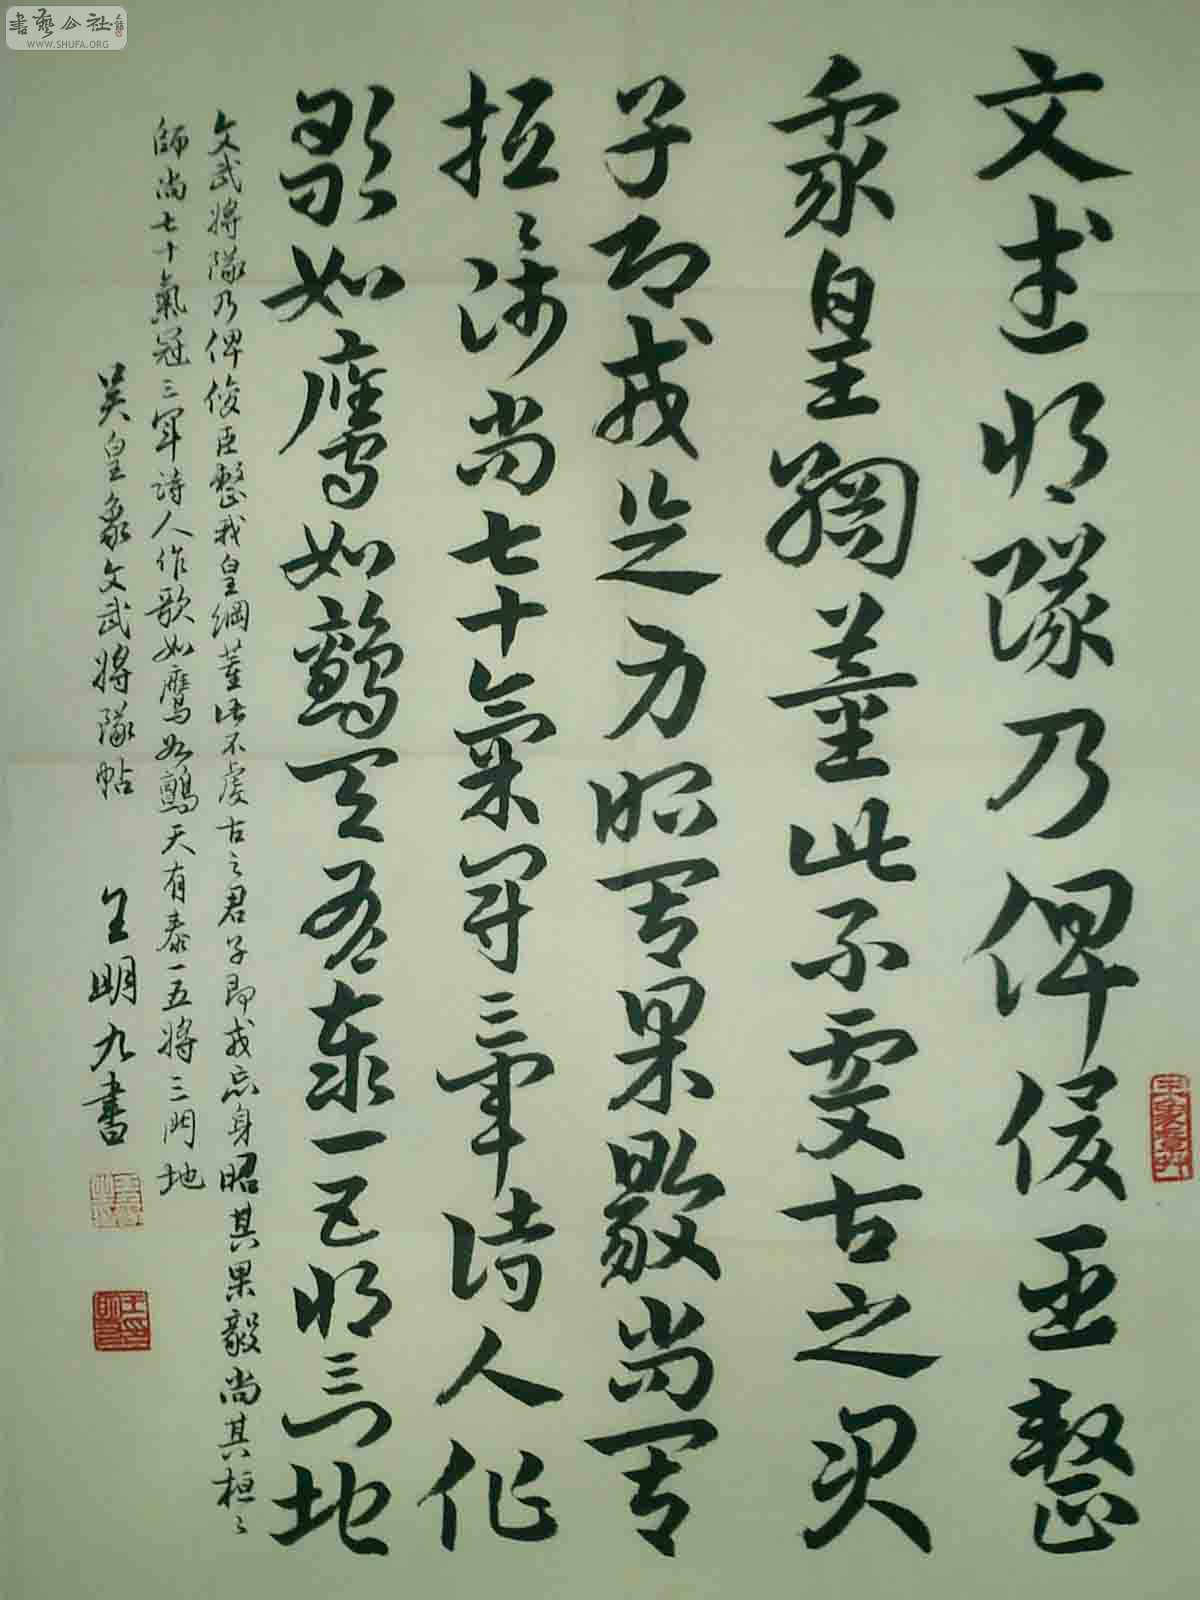 書藝公社
WWW.SHUFA.ORG
文武將隊乃俾俊臣整
我皇綱董此不虔古之君
子即戎忘身昭其果毅尚其
桓桓師尚七十氣冠三軍詩人作
歌如鷹如鸇天有泰一五將三門地
文武將隊乃俾俊臣整我皇綱董此不虔古之君子即戎忘身昭其果毅尚其桓〻
師尚七十氣冠三軍詩人作歌如鷹如鸇天有泰一五將三門地
吴皇象文武將隊帖 王明九書